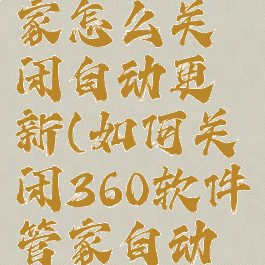 家怎么关
闭自动更
新(如何关
闭360软件
管家自动